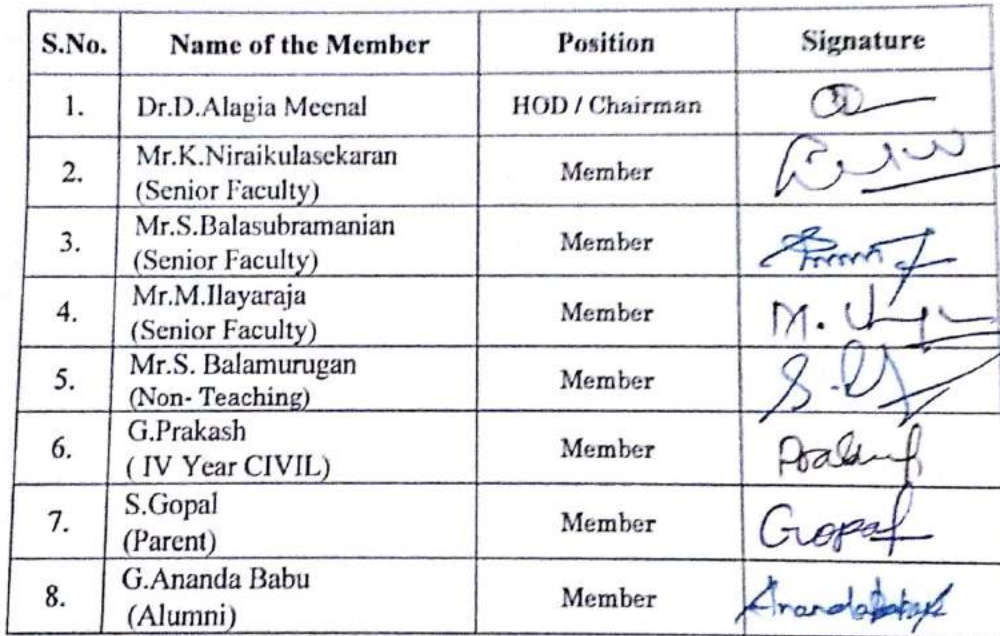 S.No. Name of the Member Position Signature
1. Dr.D.Alagia Meenal HOD / Chairman
2. Mr.K.Niraikulasekaran
(Senior Faculty) Member
3. Mr.S.Balasubramanian
(Senior Faculty) Member
4. Mr.M.Ilayaraja
(Senior Faculty) Member M.
5. Mr.S. Balamurugan
(Non- Teaching) Member
6. G.Prakash
( IV Year CIVIL) Member Prakash
7. S.Gopal
(Parent) Member Gopal
8. G.Ananda Babu
(Alumni) Member AnandaBabu